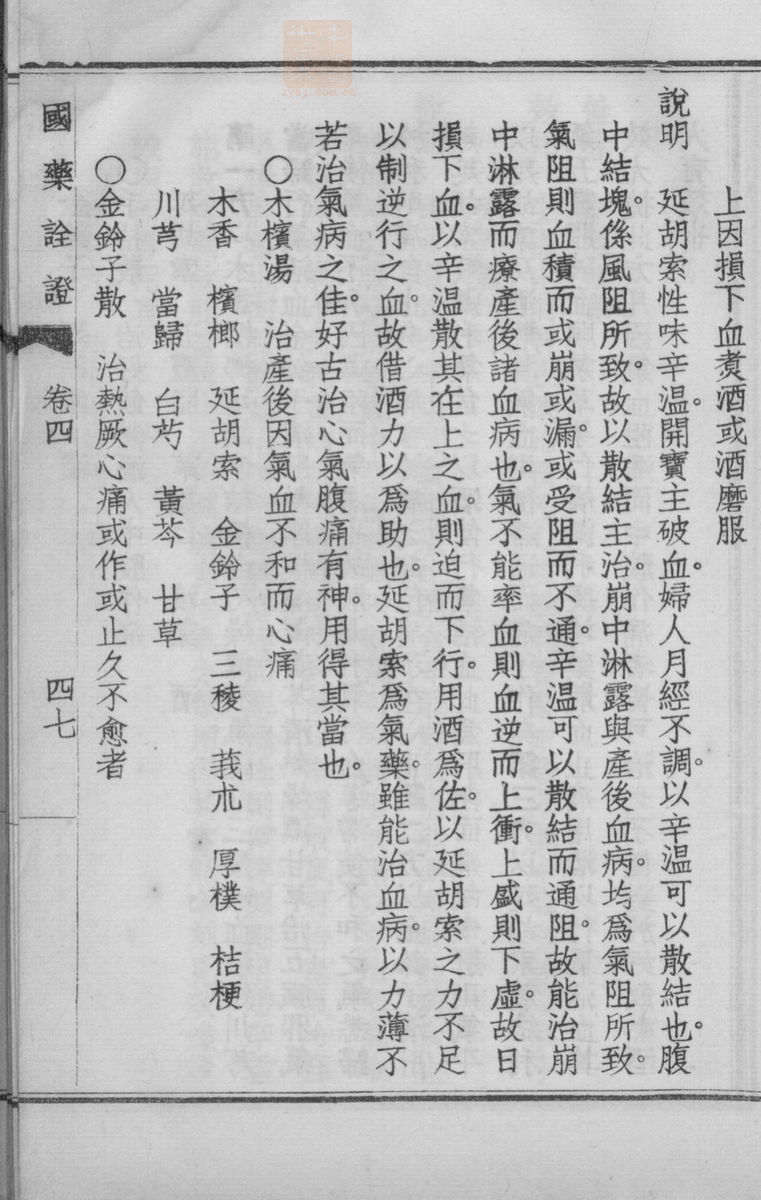 上因損下血煑酒或酒磨服
說明　延胡索性味辛温。開寶主破血。婦人月經不調。以辛温可以散結也。腹
中結塊。係風阻所致。故以散結主治。崩中淋露與產後血病。均爲氣阻所致。
氣阻則血積而或崩或漏。或受阻而不通。辛温可以散結而通阻。故能治崩
中淋露而療產後諸血病也。氣不能率血則血逆而上衝。上盛則下虛。故曰
損下血。以辛温散其在上之血。則迫而下行。用酒爲佐。以延胡索之力不足
以制逆行之血。故借酒力以爲助也。延胡索爲氣藥。雖能治血病。以力薄不
若治氣病之佳。好古治心氣腹痛有神。用得其當也。
〇木檳湯　治產後因氣血不和而心痛
木香　檳榔　延胡索　金鈴子　三稜　莪朮　厚樸　桔梗
川芎　當歸　白芍　黃芩　甘草
〇金鈴子散　治熱厥心痛或作或止久不愈者
國藥詮證　卷四　四七